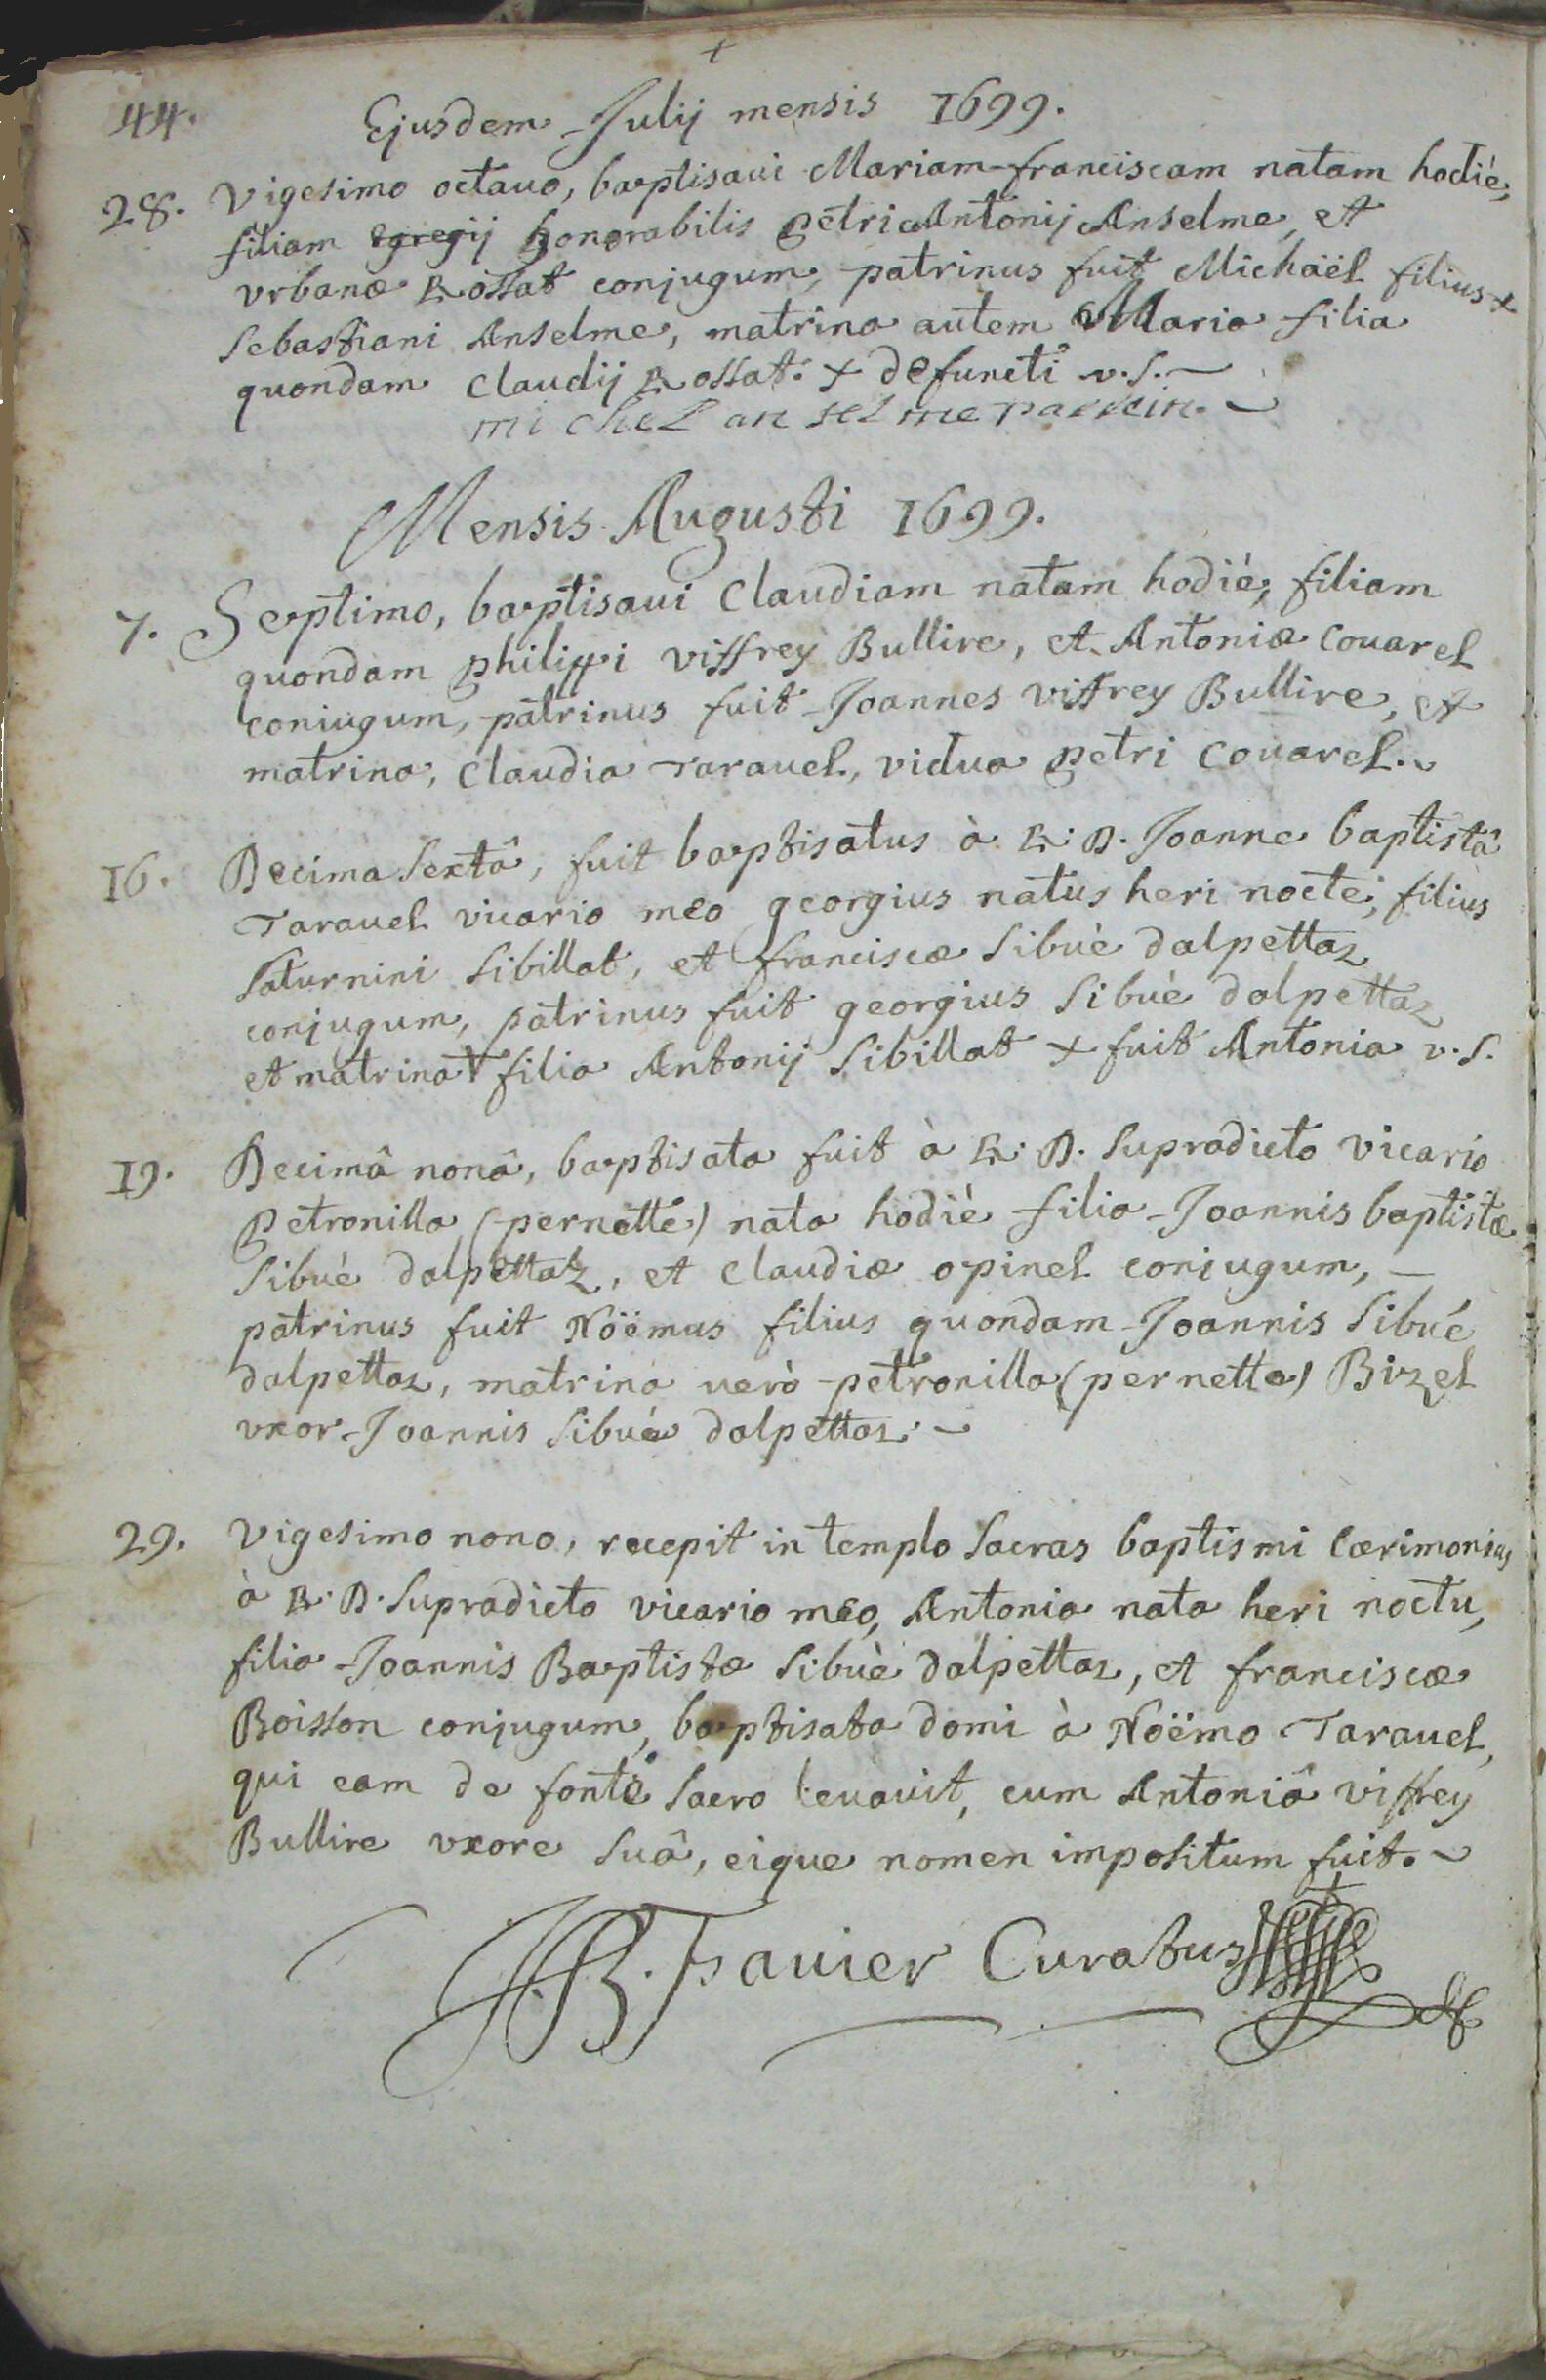 +
44. Ejusdem Julij mensis 1699.
28. Vigesimo octauo, baptisaui Mariam-franciscam natam hodiè,
filiam egregij honorabilis petri Antonij Anselme, et
vrbanæ Rossat conjugum, patrinus fuit Michaël filius +
Sebastiani Anselme, matrina autem Maria filia
quondam Claudij Rossat. + defuncti v.s.
mi chel an sel me parrein.
Mensis Augusti 1699.
7. Septimo, baptisaui Claudiam natam hodiè, filiam
quondam philippi viffrey Bullire, et Antoniæ Couarel
coniugum, patrinus fuit Joannes viffrey Bullire, et
matrina, Claudia Tarauel, vidua petri Couarel.
16. Decima Sextâ, fuit baptisatus à R. D. Joanne baptistâ
Tarauel vicario meo georgius natus heri nocte, filius
Saturnini Sibillat, et franciscæ Sibuè dalpettaz
conjugum, patrinus fuit georgius Sibuè dalpettaz
et matrina + filia Antonij Sibillat + fuit Antonia v.s.
19. Decimâ nonâ, baptisata fuit à R. D. Supradicto vicario
petronilla (pernette) nata hodiè filia Joannis baptistæ
Sibuè dalpettaz, et Claudiæ opinel coniugum,
patrinus fuit Nöëmus filius quondam Joannis Sibuè
dalpettaz, matrina verò petronilla (pernette) Bizel
vxor Joannis Sibuè dalpettaz.
29. Vigesimo nono, recepit in templo Sacras baptismi Cærimonias
à R. D. Supradicto vicario meo, Antonia nata heri noctu,
filia Joannis Baptistæ Sibuè dalpettaz, et franciscæ
Boisson conjugum, baptisata domi à Nöëmo Tarauel,
qui eam de fonte Sacro leuauit, cum Antoniâ viffrey
Bullire vxore Suâ, eique nomen impositum fuit.
JB. Fauier Curatus